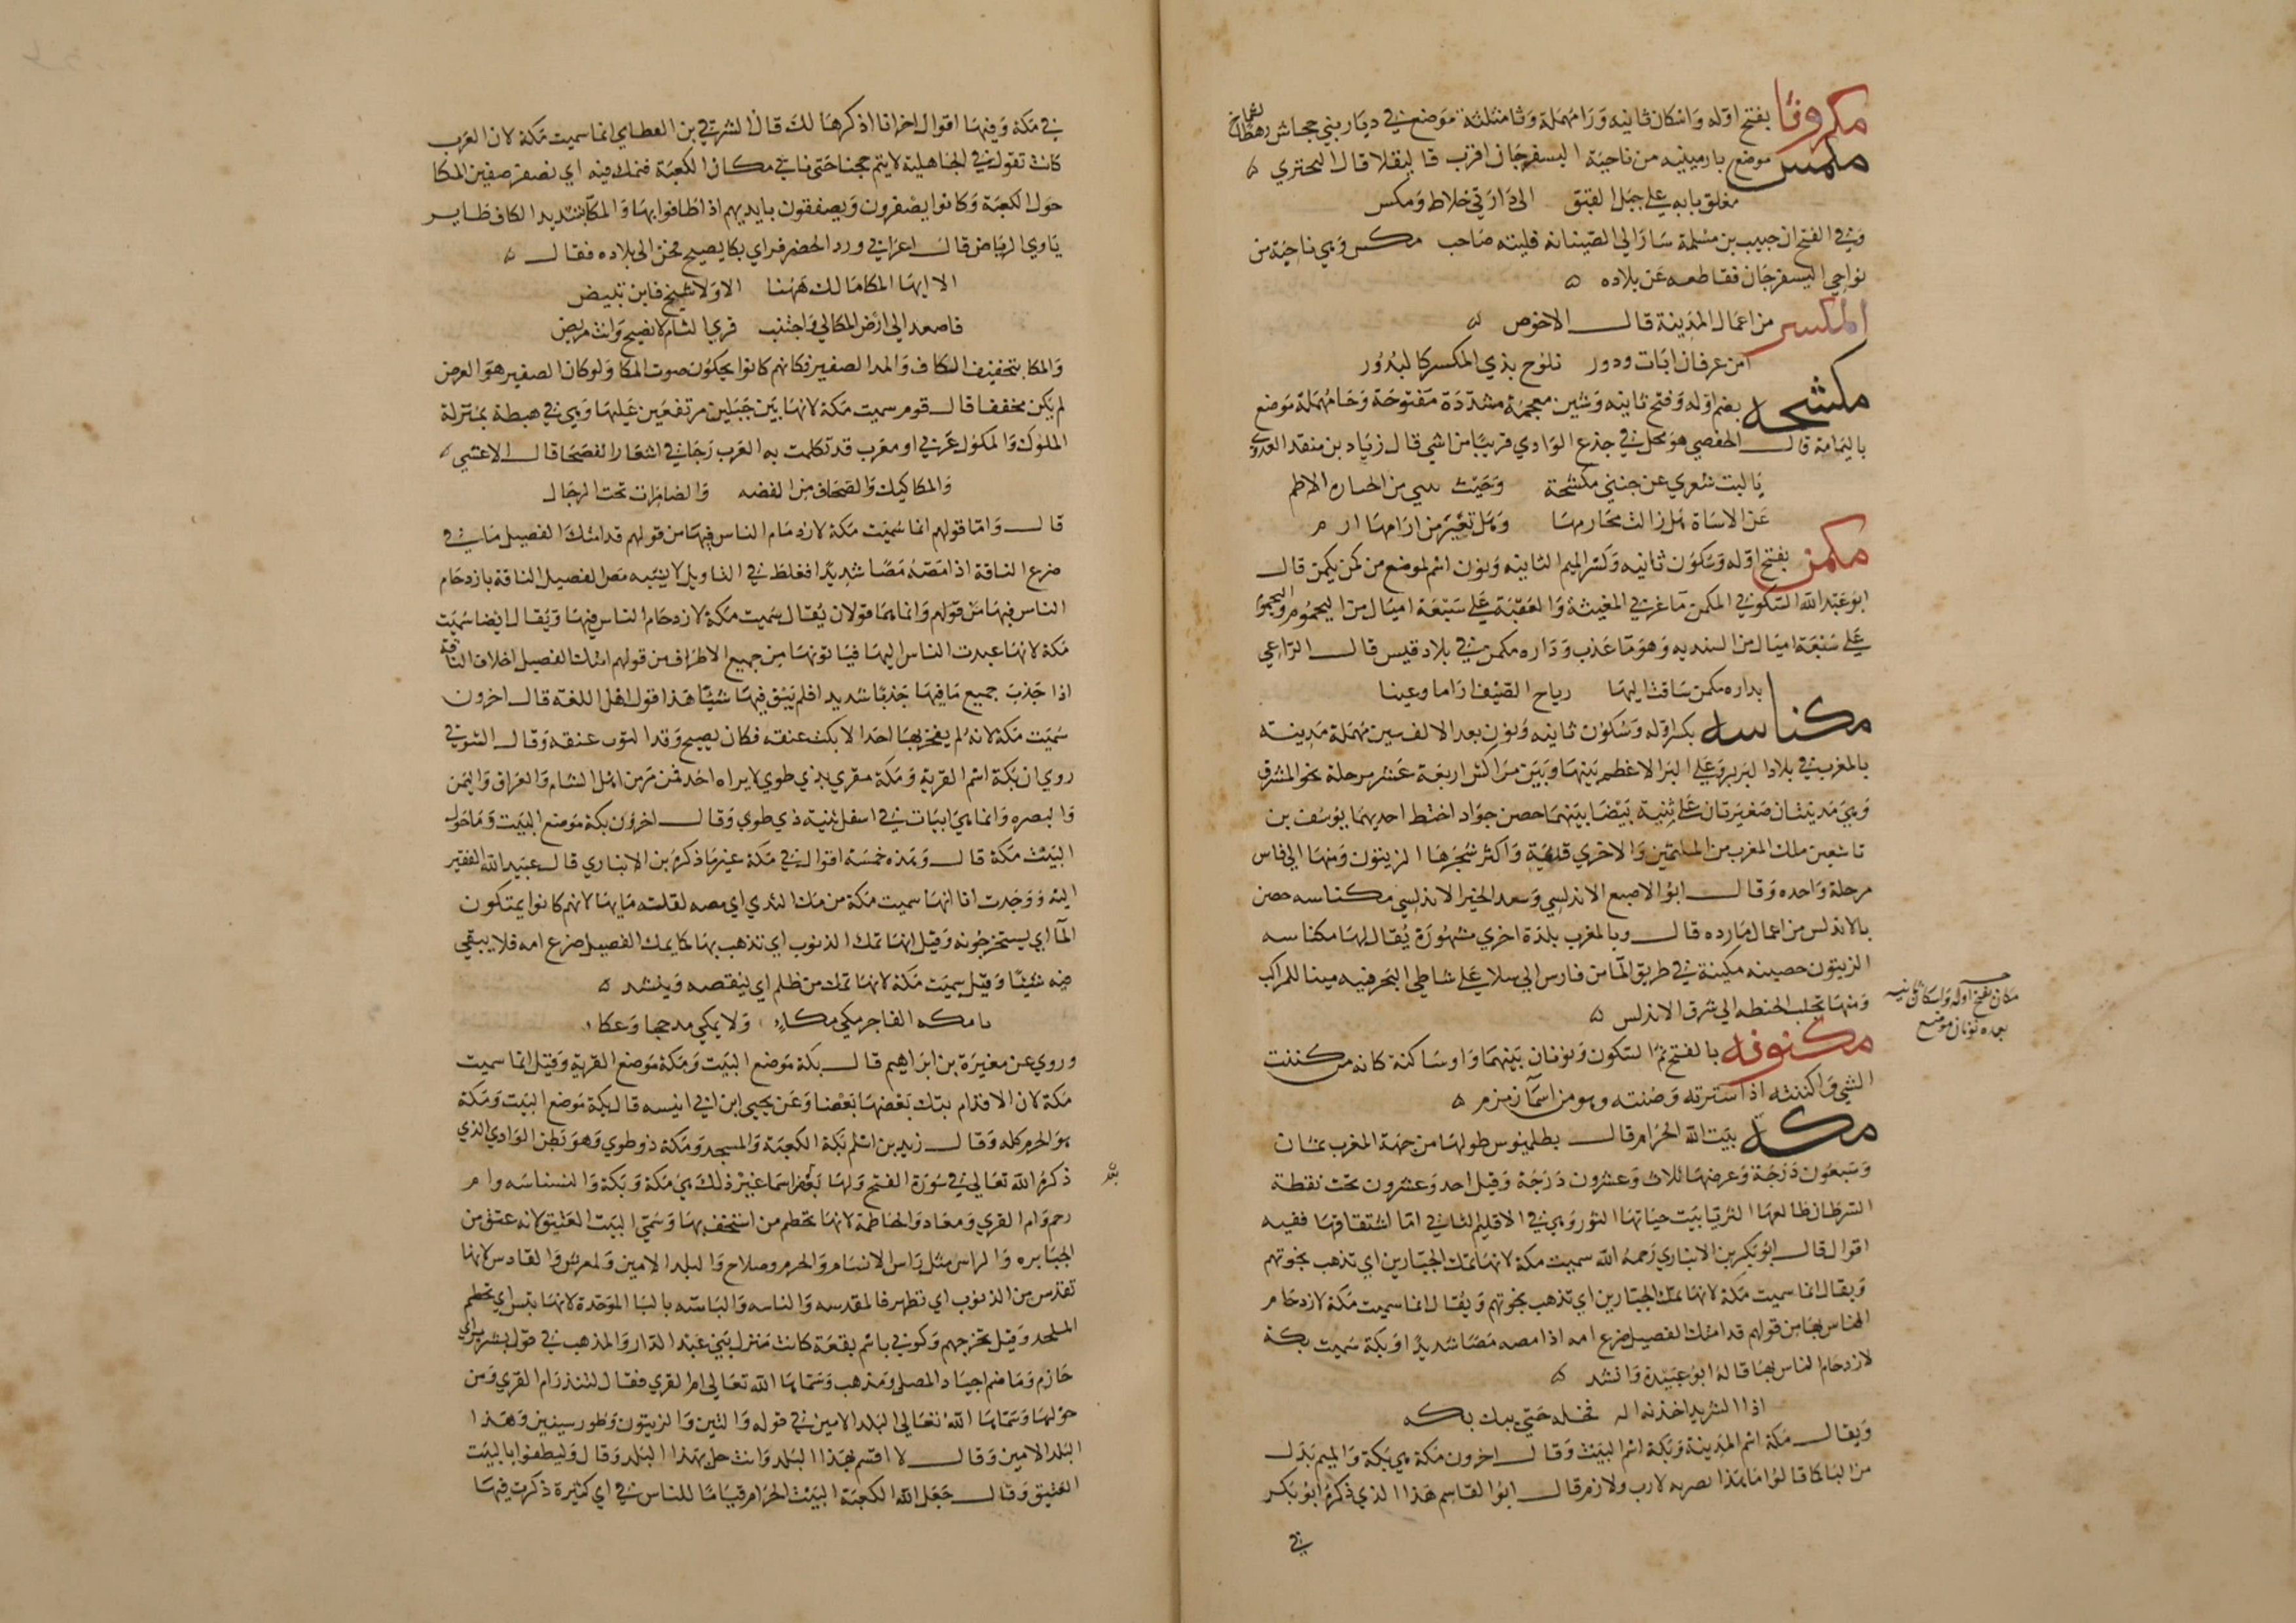 مكروثا بفتح اوله واسكان ثانيه ورا مهملة وثا مثلثة موضع في ديار بني جحاش رهط
مكس موضع بارمينيه من ناحية البسفرجان اقرب قاليقلا قال البحتري
مغلق بابه على جبل القبق الى دارتي خلاط ومكس
وفي الفتح ان حبيب بن مسلمة سار الى الصينانه فلقيه صاحب مكس وهي ناحية من
نواحي البسفرجان فقاطعه عن بلاده
المكسر من اعمال المدينة قال الاحوص
امن عرفان ايات ودور تلوح بذي المكسر كالبدور
مكشحه بضم اوله وفتح ثانيه وشين معجمة مشددة مفتوحة وحا مهملة موضع
باليمامة قال الحفصي هو نخل في جذع الوادي قريبا من اشي قال زياد بن منقذ العدوي
يا ليت شعري عن جنبي مكشحة وحيث من
عن الاساة هل زالت مخارمها وهل تغير من ارامها ارم
مكمن بفتح اوله وسكون ثانيه وكسر الميم الثانيه ونون اسم لموضع من كمن يكمن قال
ابو عبد الله السكوني المكمن ما غربي المغيثة والعقبة على سبعة اميال من اليحموم واليحموم
على سبعة اميال من السنديه وهو ما عذب وداره مكمن في بلاد قيس قال الراعي
بداره مكمن ساقت اليها رياح الصيف اراما وعينا
مكناسه بكسر اوله وسكون ثانيه ونون بعد الالف سين مهملة مدينة
بالمغرب في بلاد البربر على البر الاعظم بينها وبين مراكش اربعة عشر مرحلة نحو المشرق
وهي مدينتان صغيرتان على ثنية بيضا بينهما حصن جواد اختط احديهما يوسف بن
تاشفين ملك المغرب من الملثمين والاخرى قديمة واكثر شجرها الزيتون ومنها الى فاس
مرحلة واحده وقال ابو الاصبع الاندلسي وسعد الخير الاندلسي مكناسه حصن
بالاندلس من اعمال مارده قال وبالمغرب بلدة اخرى مشهورة يقال لها مكناسه
الزيتون حصينه مكينة في طريق المار من فارس الى سلا على شاطي البحر فيه مينا للمراكب
ومنها تجلب الحنطه الى شرق الاندلس
مكان بفتح اوله واسكان ثانيه
بعده نونان موضع
مكنونه بالفتح ثم السكون ونونان بينهما واو ساكنة كانه من كننت
الشي واكننته اذا سترته وصنته وهو من اسما زمزم
مكه بيت الله الحرام قال بطلميوس طولها من جهة المغرب ثمان
وسبعون درجة وعرضها ثلاث وعشرون درجة وقيل احد وعشرون تحت نقطة
السرطان طالعها الثريا بيت حياتها الثور وهي في الاقليم الثاني اما اشتقاقها ففيه
اقوال قال ابو بكر بن الانباري رحمه الله سميت مكة لانها تمك الجبارين اي تذهب نخوتهم
ويقال انما سميت مكة لانها تمك الجبارين اي تذهب نخوتهم ويقال انما سميت مكة لازدحام
الناس بها من قولهم قد امتك الفصيل ضرع امه اذا مصه مصا شديدا وبكة سميت بكة
لازدحام الناس بها قاله ابو عبيدة وانشد
اذا الشريب اخذته اله فخله حتى يبك بكه
ويقال مكة اسم المدينة وبكة اسم البيت وقال اخرون مكة هي بكة والميم بدل
من البا كما قالوا ما هذا بضربه لازب ولازم قال ابو القاسم هذا الذي ذكره ابو بكر
في
في مكة وفيها اقوال اخر انا اذكرها لك قال الشرقي بن القطامي انما سميت مكة لان العرب
كانت تقول في الجاهلية لا يتم حجنا حتى ناتي مكان الكعبة فنمك فيه اي نصفر صفير المكا
حول الكعبة وكانوا يصفرون ويصفقون بايديهم اذا طافوا بها والمكا بتشديد الكاف طاير
ياوي الرياض قال اعرابي ورد الحضر فراي مكا يصيح فحن الى بلاده فقال
الا ايها المكا مالك ههنا الا ولا شيح فاين تبيض
فاصعد الى ارض المكاكي واجتنب قرى الشام لا تصيح وانت مريض
والمكا بتخفيف الكاف والمد الصفير فكانهم كانوا يحكون صوت المكا ولو كان الصفير هو الغرض
لم يكن مخففا قال قوم سميت مكة لانها بين جبلين مرتفعين عليها وهي في هبطة بمنزلة
الملوك والمكوك عربي او معرب قد تكلمت به العرب وجا في اشعار الفصحا قال الاعشى
والمكاكيك والصحاف من الفضه والضامزات تحت الرجال
قال واما قولهم انما سميت مكة لازدحام الناس فيها من قولهم قد امتك الفصيل ما في
ضرع الناقة اذا مصه مصا شديدا فغلط في التاويل لا يشبه مص الفصيل الناقة بازدحام
الناس فيها من قولهم وانما هما قولان يقال سميت مكة لازدحام الناس فيها ويقال ايضا سميت
مكة لانها عبدت الناس اليها فياتونها من جميع الاطراف من قولهم امتك الفصيل اخلاف الناقة
اذا جذب جميع ما فيها جذبا شديدا فلم يبق فيها شيئا هذا قول اهل اللغة قال اخرون
سميت مكة لانه لم يفخر بها احد الا بكت عنقه فكان يصبح وقد التوت عنقه وقال الشوقي
روي ان بكة اسم القرية ومكة مغزى بذي طوى لا يراه احد ممن مر من اهل الشام والعراق واليمن
والبصره وانما هي ابيات في اسفل ثنية ذي طوى وقال اخرون بكة موضع البيت وما حول
البيت مكة قال وهذه خمسة اقوال في مكة غير ما ذكره بن الانباري قال عبيد الله الفقير
اليه ووجدت انا انها سميت مكة من مك الثدي اي مصه لقلة مايها لانهم كانوا يمتكون
الما اي يستخرجونه وقيل انها تمك الذنوب اي تذهب بها كما يمك الفصيل ضرع امه فلا يبقي
فيه شيئا وقيل سميت مكة لانها تمك من ظلم اي ينقصه وينشد
يا مكه الفاجر مكي مكا ولا تمكي مذحجا وعكا
وروي عن مغيرة بن ابراهيم قال بكة موضع البيت ومكة موضع القرية وقيل انما سميت
مكة لان الاقدام تبك بعضها بعضا وعن يحيى بن ابي انيسه قال بكة موضع البيت ومكة
هو الحرم كله وقال زيد بن اسلم بكة الكعبة والمسجد ومكة ذو طوى وهو بطن الوادي الذي
ذكره الله تعالى في سورة الفتح ولها اسما غير ذلك هي مكة وبكة والنسناسه وام
رحم وام القرى ومعاد والحاطمة لانها تحطم من استخف بها وسمي البيت العتيق لانه عتق من
الجبابره والراس مثل راس الانسان والحرم وصلاح والبلد الامين والعرش والقادس لانها
تقدس من الذنوب اي تطهر فالمقدسه والناسه والباسه بالبا الموحدة لانها تبس اي تحطم
الملحد وقيل تخرجهم وكوثى باسم بقعة كانت منزل بني عبد الدار والمذهب في قول بشر بن ابي
خازم وما ضم اجياد المصلى ومذهب وسماها الله تعالى ام القرى فقال لتنذر ام القرى ومن
حولها وسماها الله تعالى البلد الامين في قوله والتين والزيتون وطور سينين وهذا
البلد الامين وقال لا اقسم بهذا البلد وانت حل بهذا البلد وقال وليطوفوا بالبيت
العتيق وقال جعل الله الكعبة البيت الحرام قياما للناس في اي كثيرة ذكرت فيها